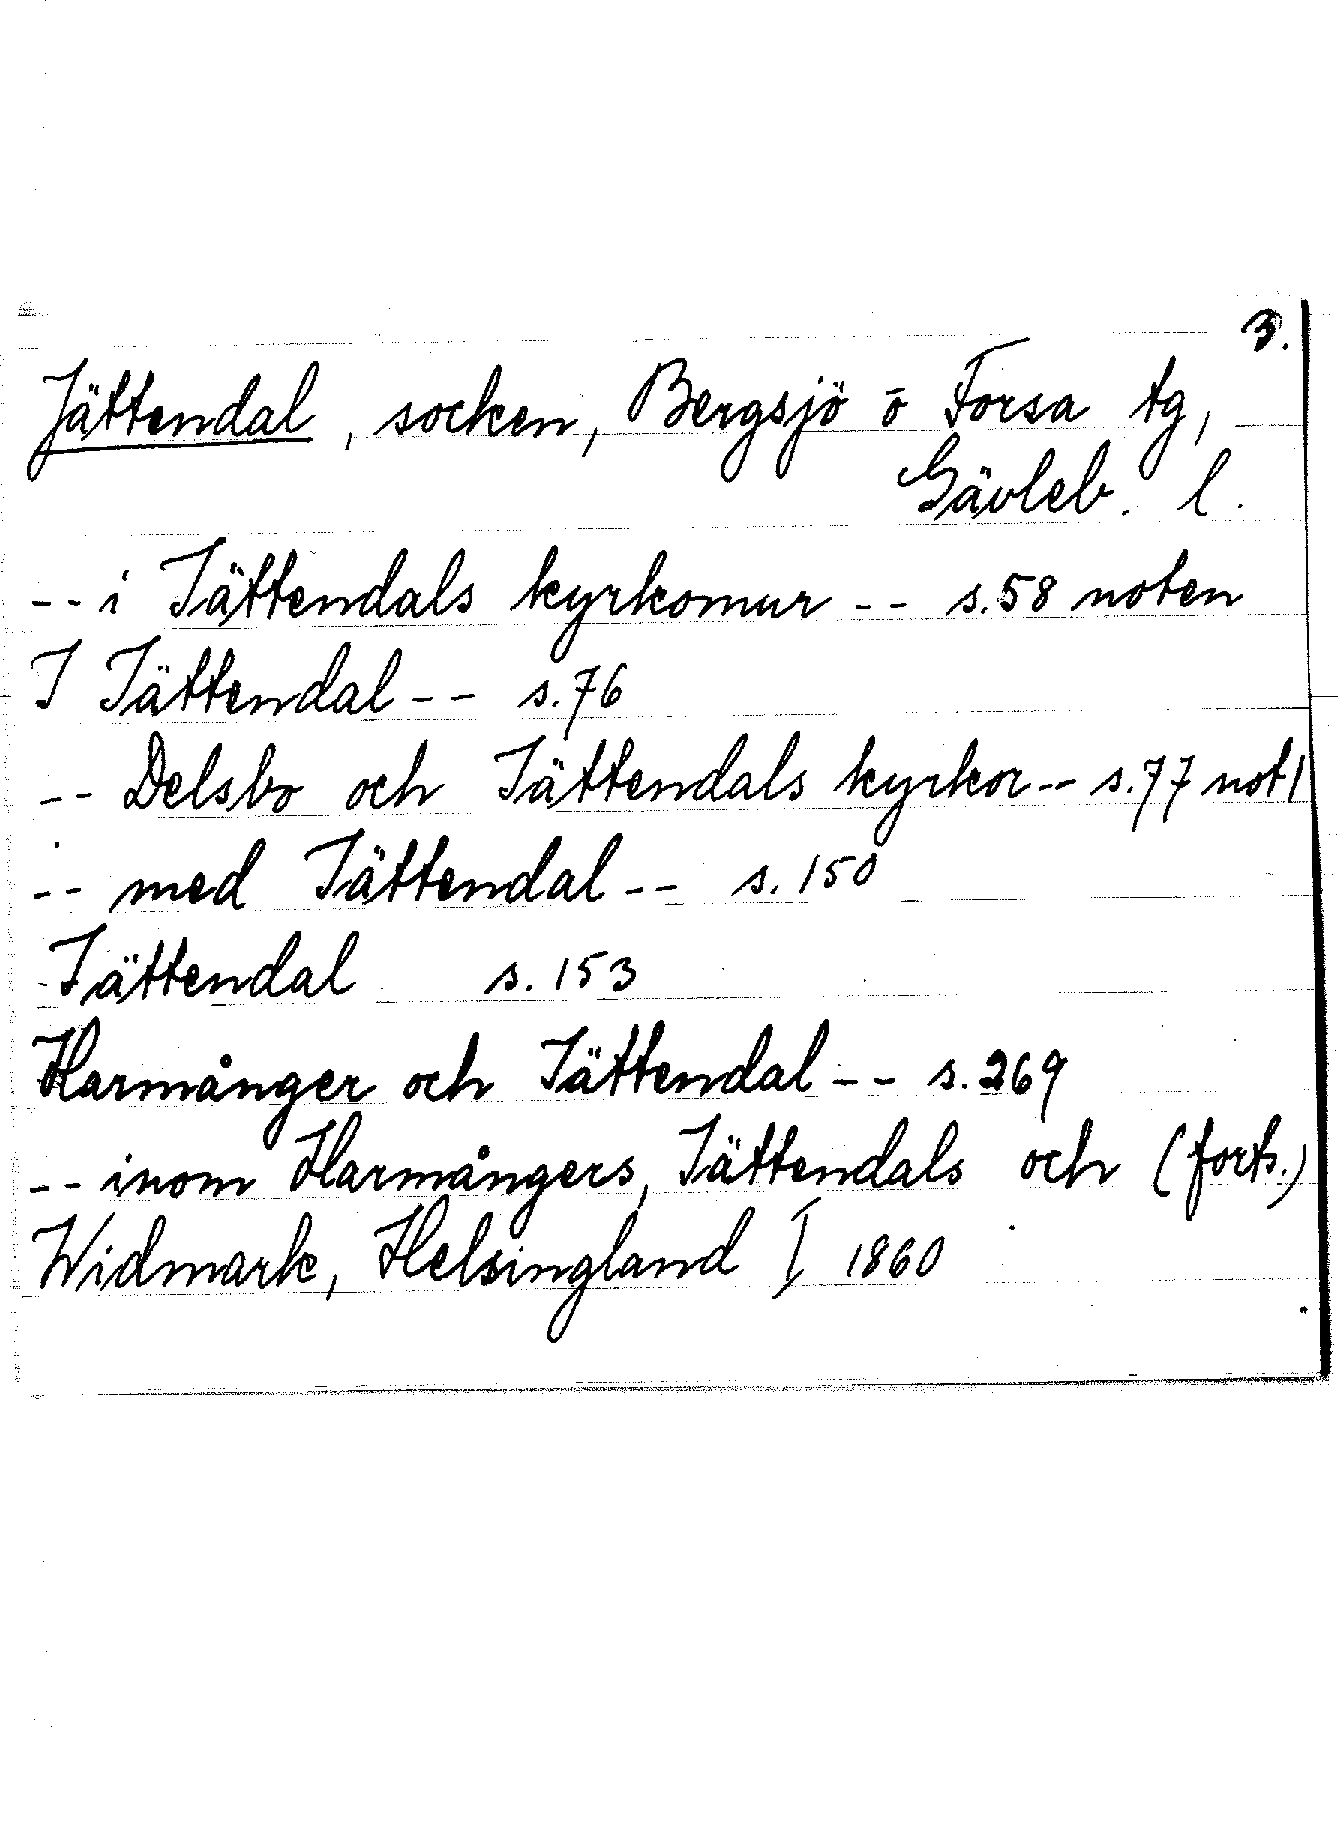 3.
Jättendal, socken, Bergsjö o Forsa tg,
Gävleb. l.
-- i Jättendals kyrkomur -- s. 58 noten
I Jättendal -- s. 76
-- Delsbo och Jättendals kyrkor -- s. 77 not 1
-- med Jättendal -- s. 150
Jättendal s. 153
Harmånger och Jättendal -- s. 269
-- inom Harmångers, Jättendals och (forts.)
Widmark, Helsingland I 1860